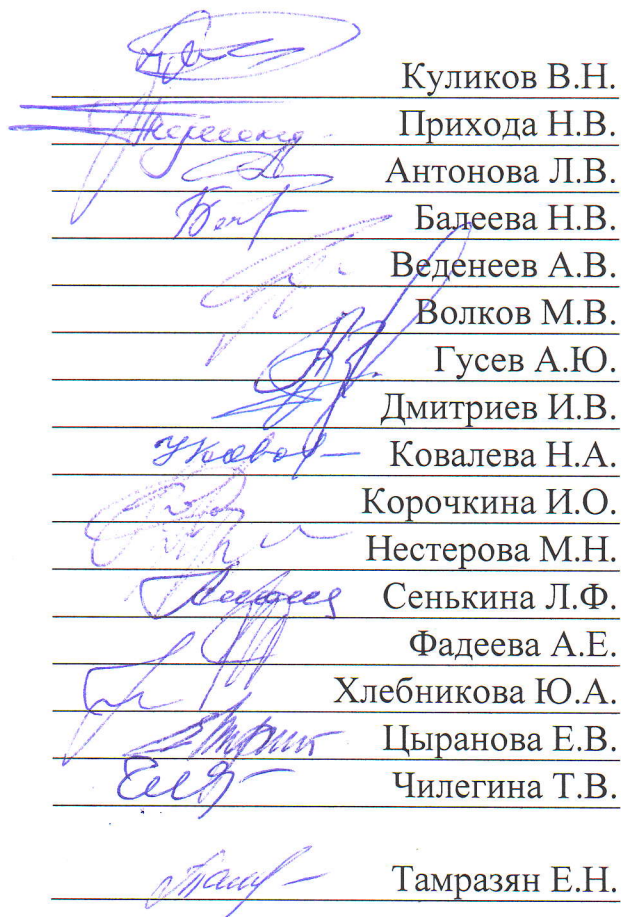 Куликов В.Н.
Прихода Н.В.
Антонова Л.В.
Балеева Н.В.
Веденеев А.В.
Волков М.В.
Гусев А.Ю.
Дмитриев И.В.
Ковалева Н.А.
Корочкина И.О.
Нестерова М.Н.
Сенькина Л.Ф.
Фадеева А.Е.
Хлебникова Ю.А.
Цыранова Е.В.
Чилегина Т.В.
Тамразян Е.Н.